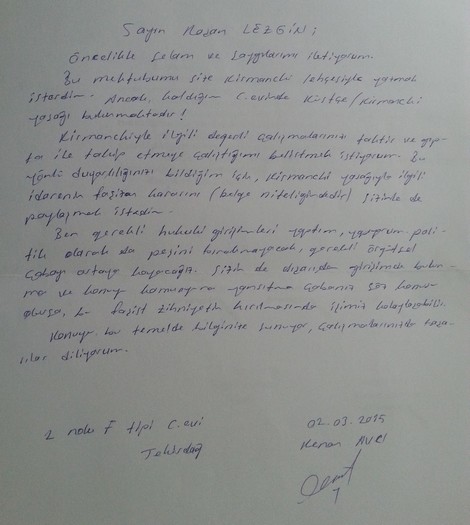 Sayın Roşan LEZGİN;
Öncelikle selam ve saygılarımı iletiyorum.
Bu mektubumu size Kırmancki lehçesiyle yazmak
isterdim. Ancak, kaldığım C.evinde Kürtçe/Kırmancki
yasağı bulunmaktadır!
Kırmanckiyle ilgili değerli çalışmalarınızı taktir ve gıp-
ta ile takip etmeye çalıştığımı belirtmek istiyorum. Bu
yönlü duyarlılığınızı bildiğim için, Kırmancki yasağıyla ilgili
idarenin faşizan kararını (belge niteliğindedir) sizinle de
paylaşmak istedim.
Ben gerekli hukuki girişimleri yaptım, yapıyorum. poli-
tik olarak da peşini bırakmayacak, gerekli örgütsel
çabayı ortaya koyacağız. Sizin de dışarıdan girişimde bulun-
ma ve konuyu kamuoyuna yansıtma çabanız söz konusu
olursa, bu faşist zihniyetin kırılmasında işimiz kolaylaşabilir.
Konuyu bu temelde bilginize sunuyor, çalışmalarınızda başa-
rılar diliyorum.
2 nolu F tipi C.evi
Tekirdağ
02.03.2015
Kenan AVCI